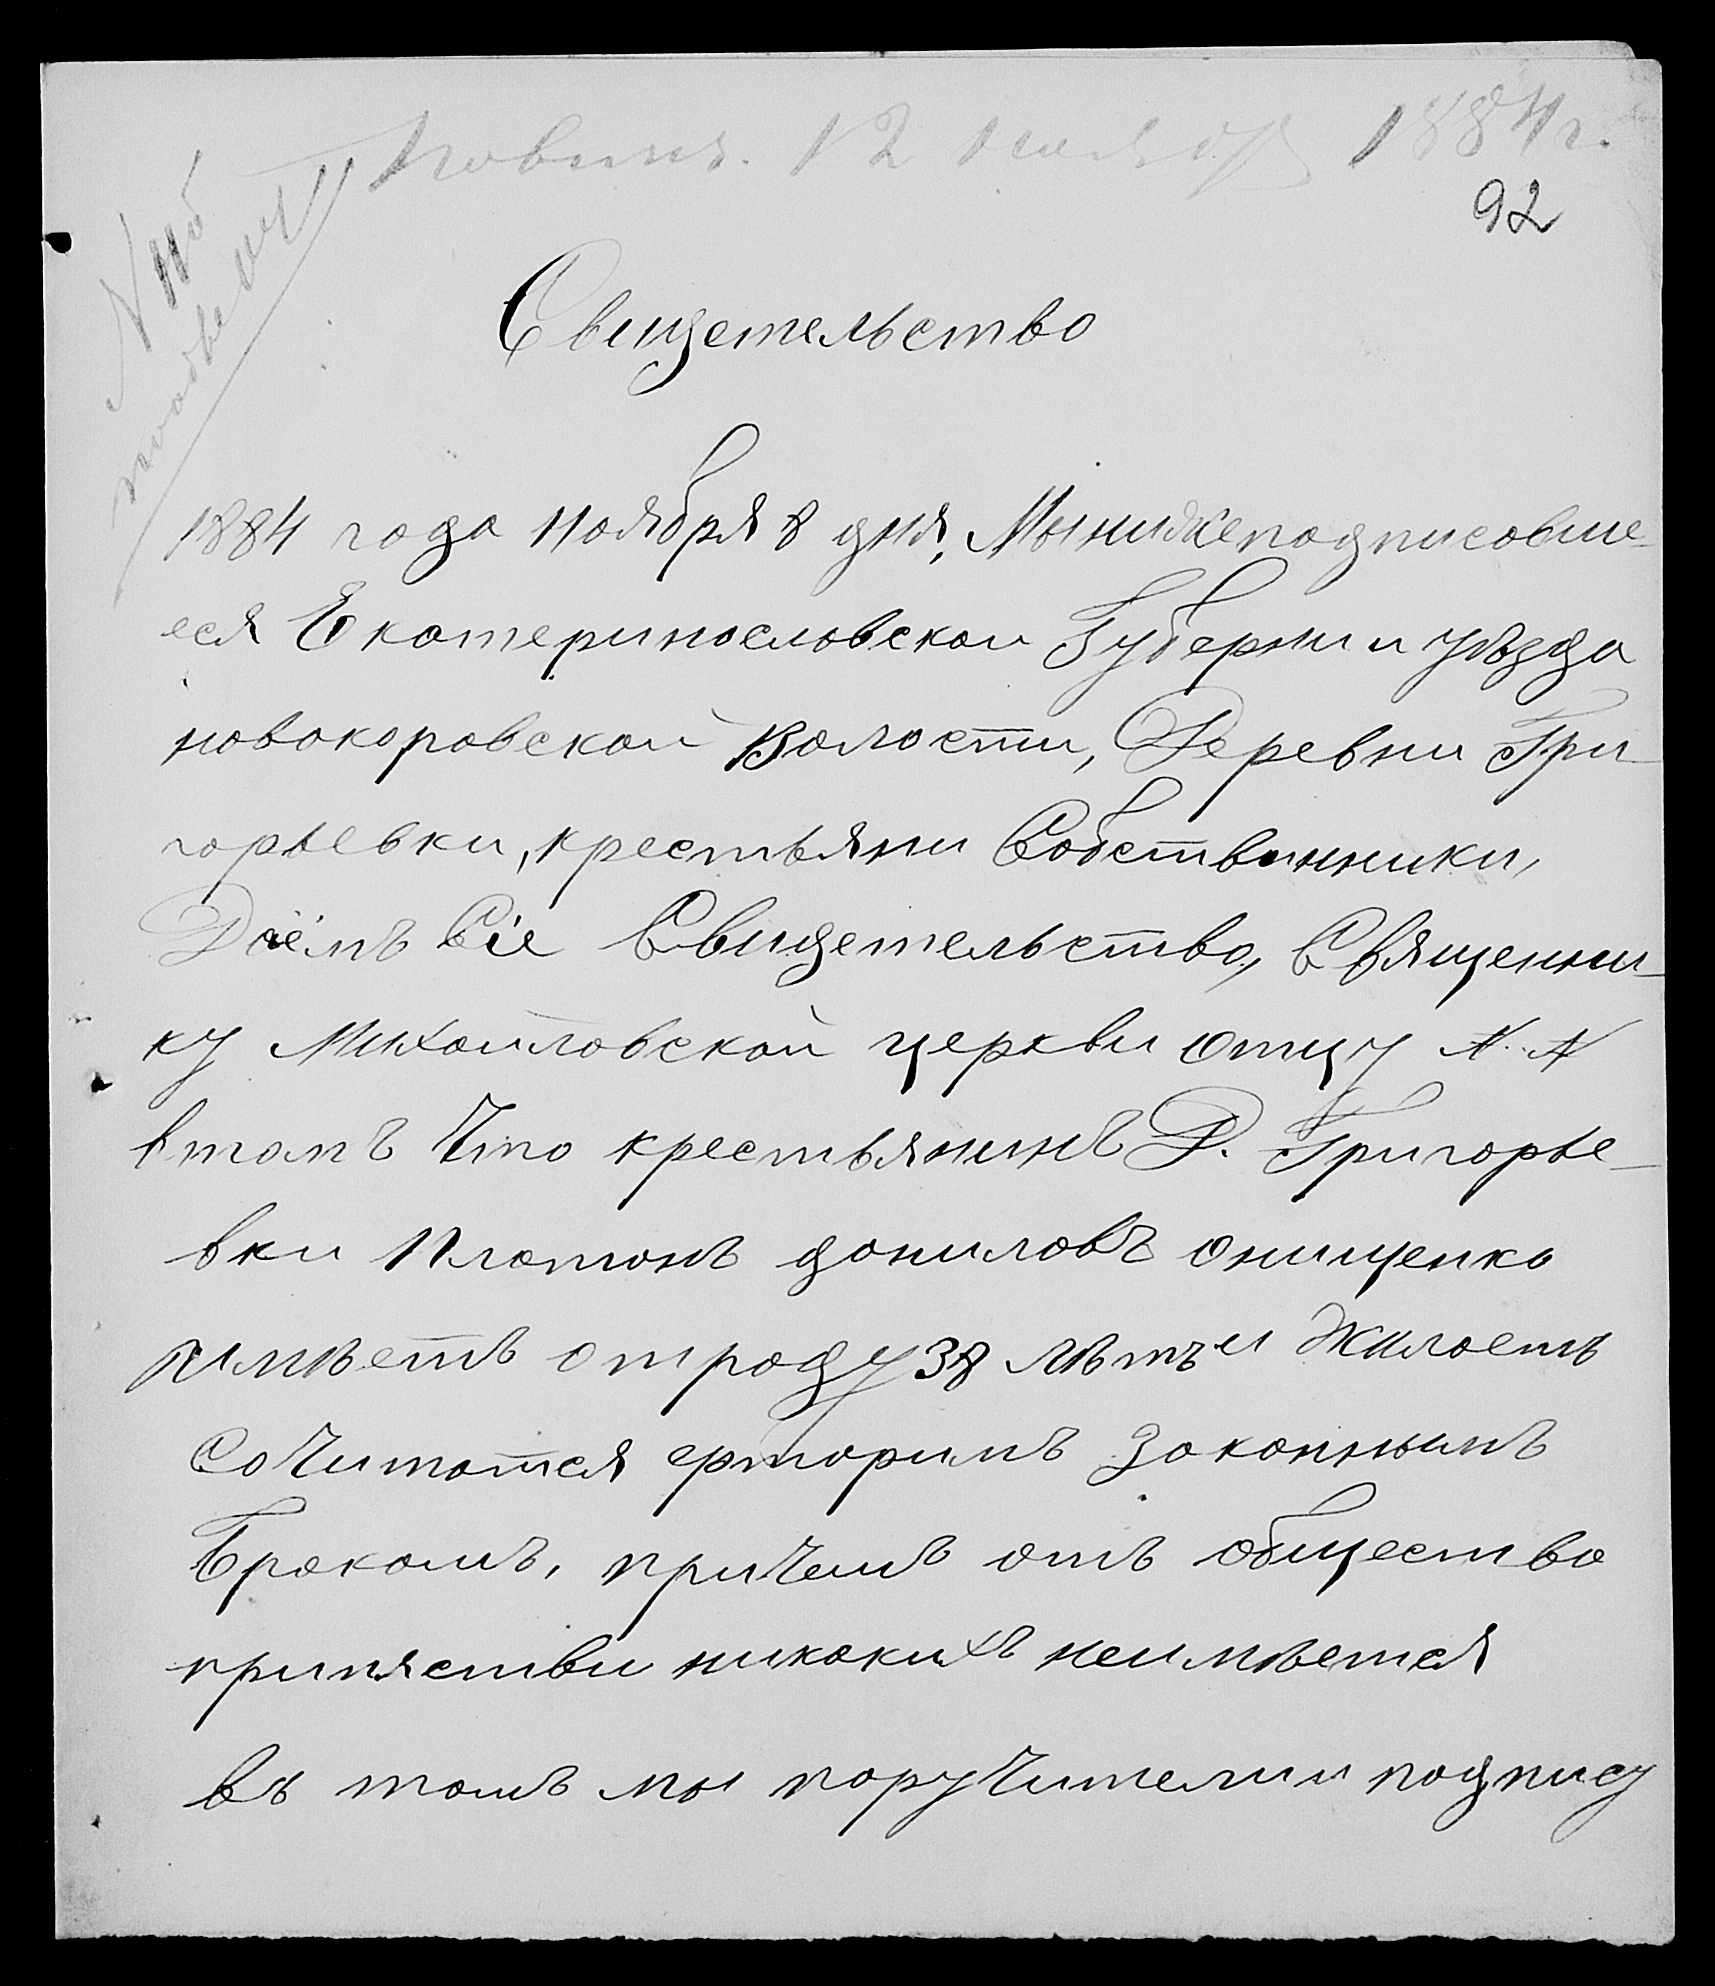 12 ноябр 1884 г.
92
N 115
Свидетельство
1884 года ноября 8 дня, Мынижеподписовше-
еся Екатеринословскои Губернии уѣзда
новокоровской Волости, Деревни Гри-
горьевки, крестьяни Собственники,
Даёмъ Сіе Свидетельство, Священни-
ку Михаиловской церкви отцу N. N
втомъ Что крестьянинъ Д. Григорье-
вки Платонъ даниловъ онищенко
имѣетъ отроду 38 лѣтъ и Жилаеть
соЧитатся законнымъ
Бракомъ, приЧемъ отъ общества
припяствии никакихъ неимѣется
въ томъ мы поруЧители и подпису